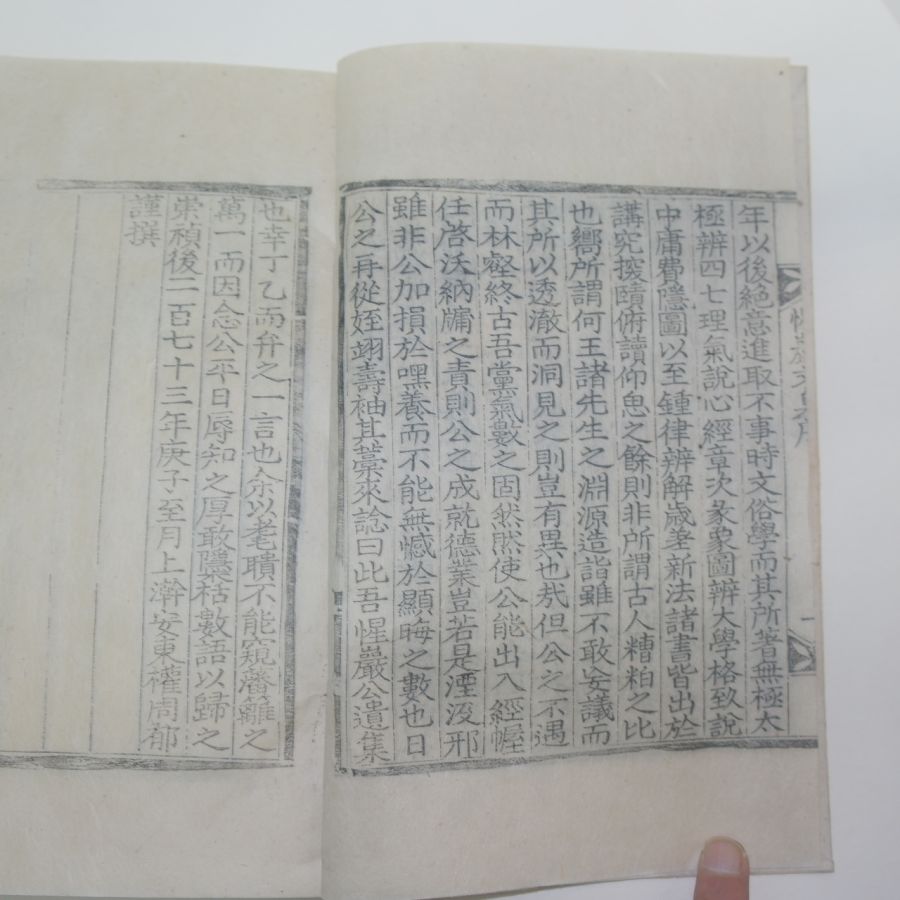 惺巖文集序
一
年以後絶意進取不事時文俗學而其所著無極太
極辨四七理氣說心經章次彖象圖辨大學格致說
中庸費隱圖以至鍾律辨解歲差新法諸書皆出於
講究探賾俯讀仰思之餘則非所謂古人糟粕之比
也嚮所謂何王諸先生之淵源造詣雖不敢妄議而
其所以透澈而洞見之則豈有異也㢤但公之不遇
而林壑終古吾黨氣數之固然然使公能出入經幄
任啓沃納牖之責則公之成就德業豈若是湮沒邢
雖非公加損於嘿養而不能無憾於顯晦之數也日
公之再從姪翊壽袖其藁來諗曰此吾惺巖公遺集
也幸丁乙而弁之一言也余以耄聵不能窺藩籬之
萬一而因念公平日辱知之厚敢隱栝數語以歸之
崇禎後二百七十三年庚子至月上澣安東權周郁
謹撰